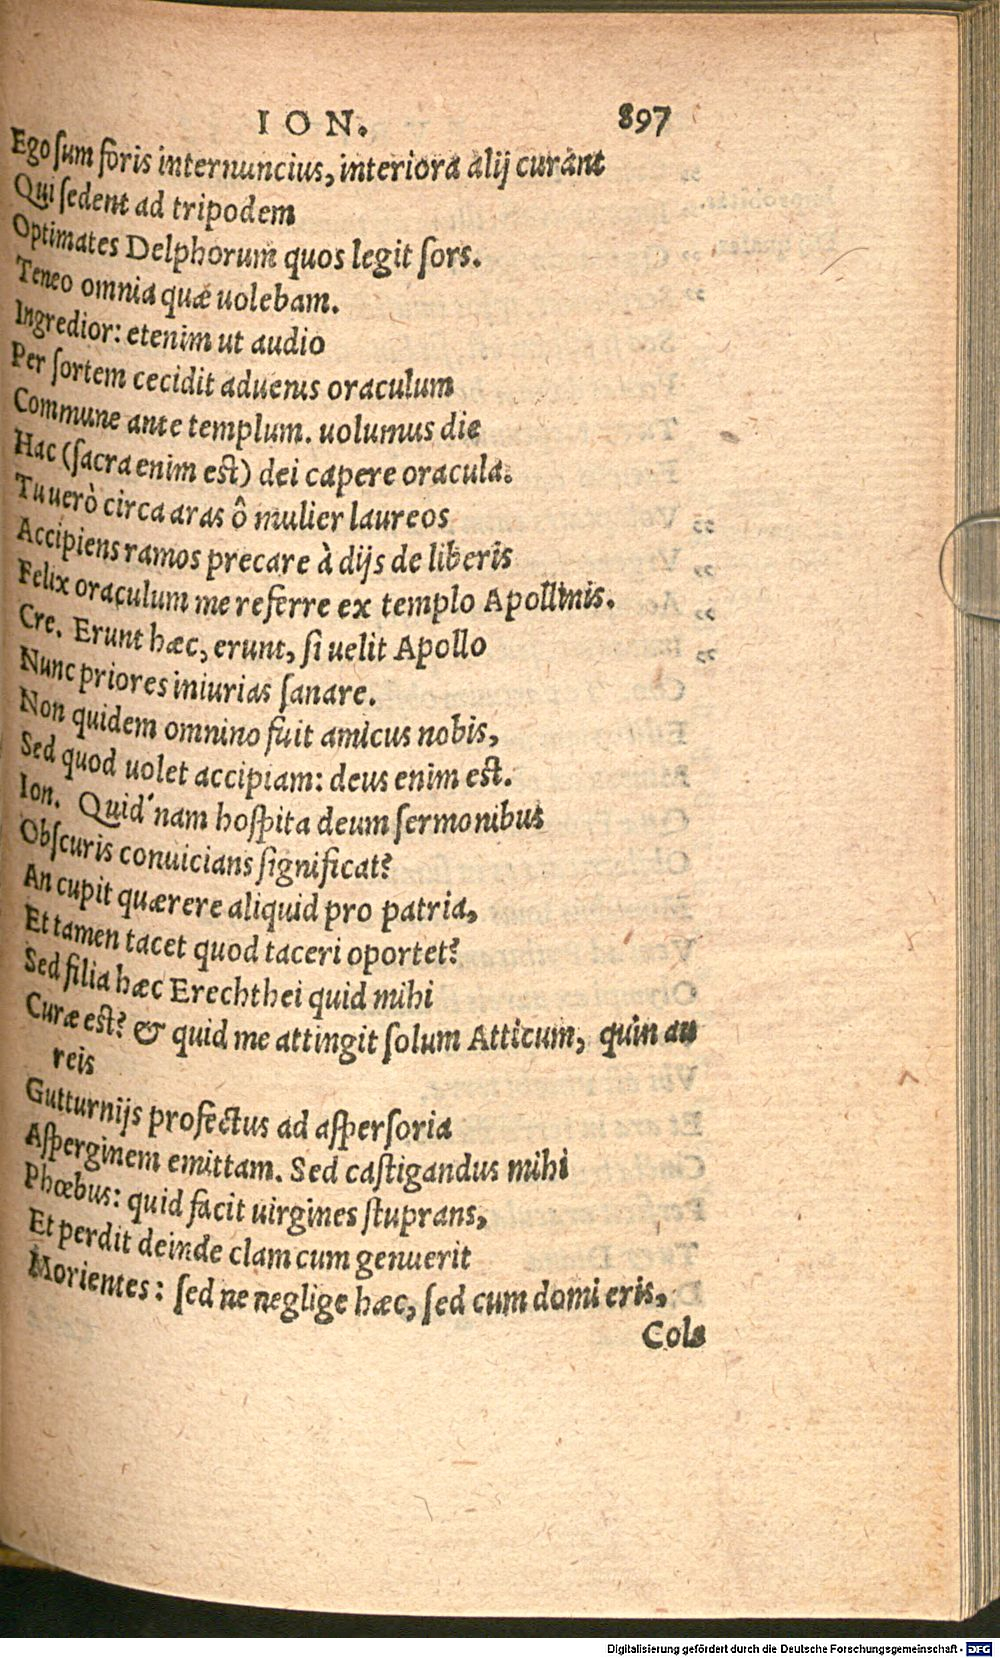 ION. 897
Ego sum foris internuncius, interiora alij curant
Qui sedent ad tripodem
Optimates Delphorum quos legit sors.
Teneo omnia quæ uolebam.
Ingredior: etenim ut audio
Per sortem cecidit aduenis oraculum
Commune ante templum. uolumus die
Hac (sacra enim est) dei capere oracula.
Tu uerò circa aras ô mulier laureos
Accipiens ramos precare à dijs de liberis
Felix oraculum me referre ex templo Apollinis.
Cre. Erunt hæc, erunt, si uelit Apollo
Nunc priores iniurias sanare.
Non quidem omnino fuit amicus nobis,
Sed quod uolet accipiam: deus enim est.
Ion. Quid'nam hospita deum sermonibus
Obscuris conuicians significat?
An cupit quærere aliquid pro patria,
Et tamen tacet quod taceri oportet?
Sed filia hæc Erechthei quid mihi
Curæ est? & quid me attingit solum Atticum, quin au
reis
Gutturnijs profectus ad aspersoria
Asperginem emittam. Sed castigandus mihi
Phœbus: quid facit uirgines stuprans,
Et perdit deinde clam cum genuerit
Morientes: sed ne neglige hæc, sed cum domi eris,
Cols
Digitalisierung gefördert durch die Deutsche Forschungsgemeinschaft - DFG